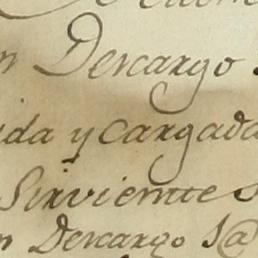 n Descargo
ida y cargada
Sirviemtte
n Descargo